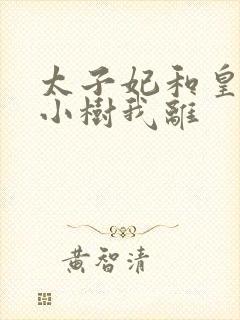 太子妃和皇
小樹我離
黃智清